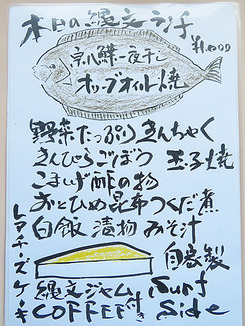 本日の縄文ランチ
¥1,000
宗八鰈一夜干し
オリーブオイル焼
野菜たっぷりきんちゃく
きんぴらごぼう 玉子焼
こまいげ酢の物
おとひめ昆布つくだ煮
白飯 漬物 みそ汁
レアチーズケーキ
自家製
縄文ジャム付き
COFFEE
Surf
Side